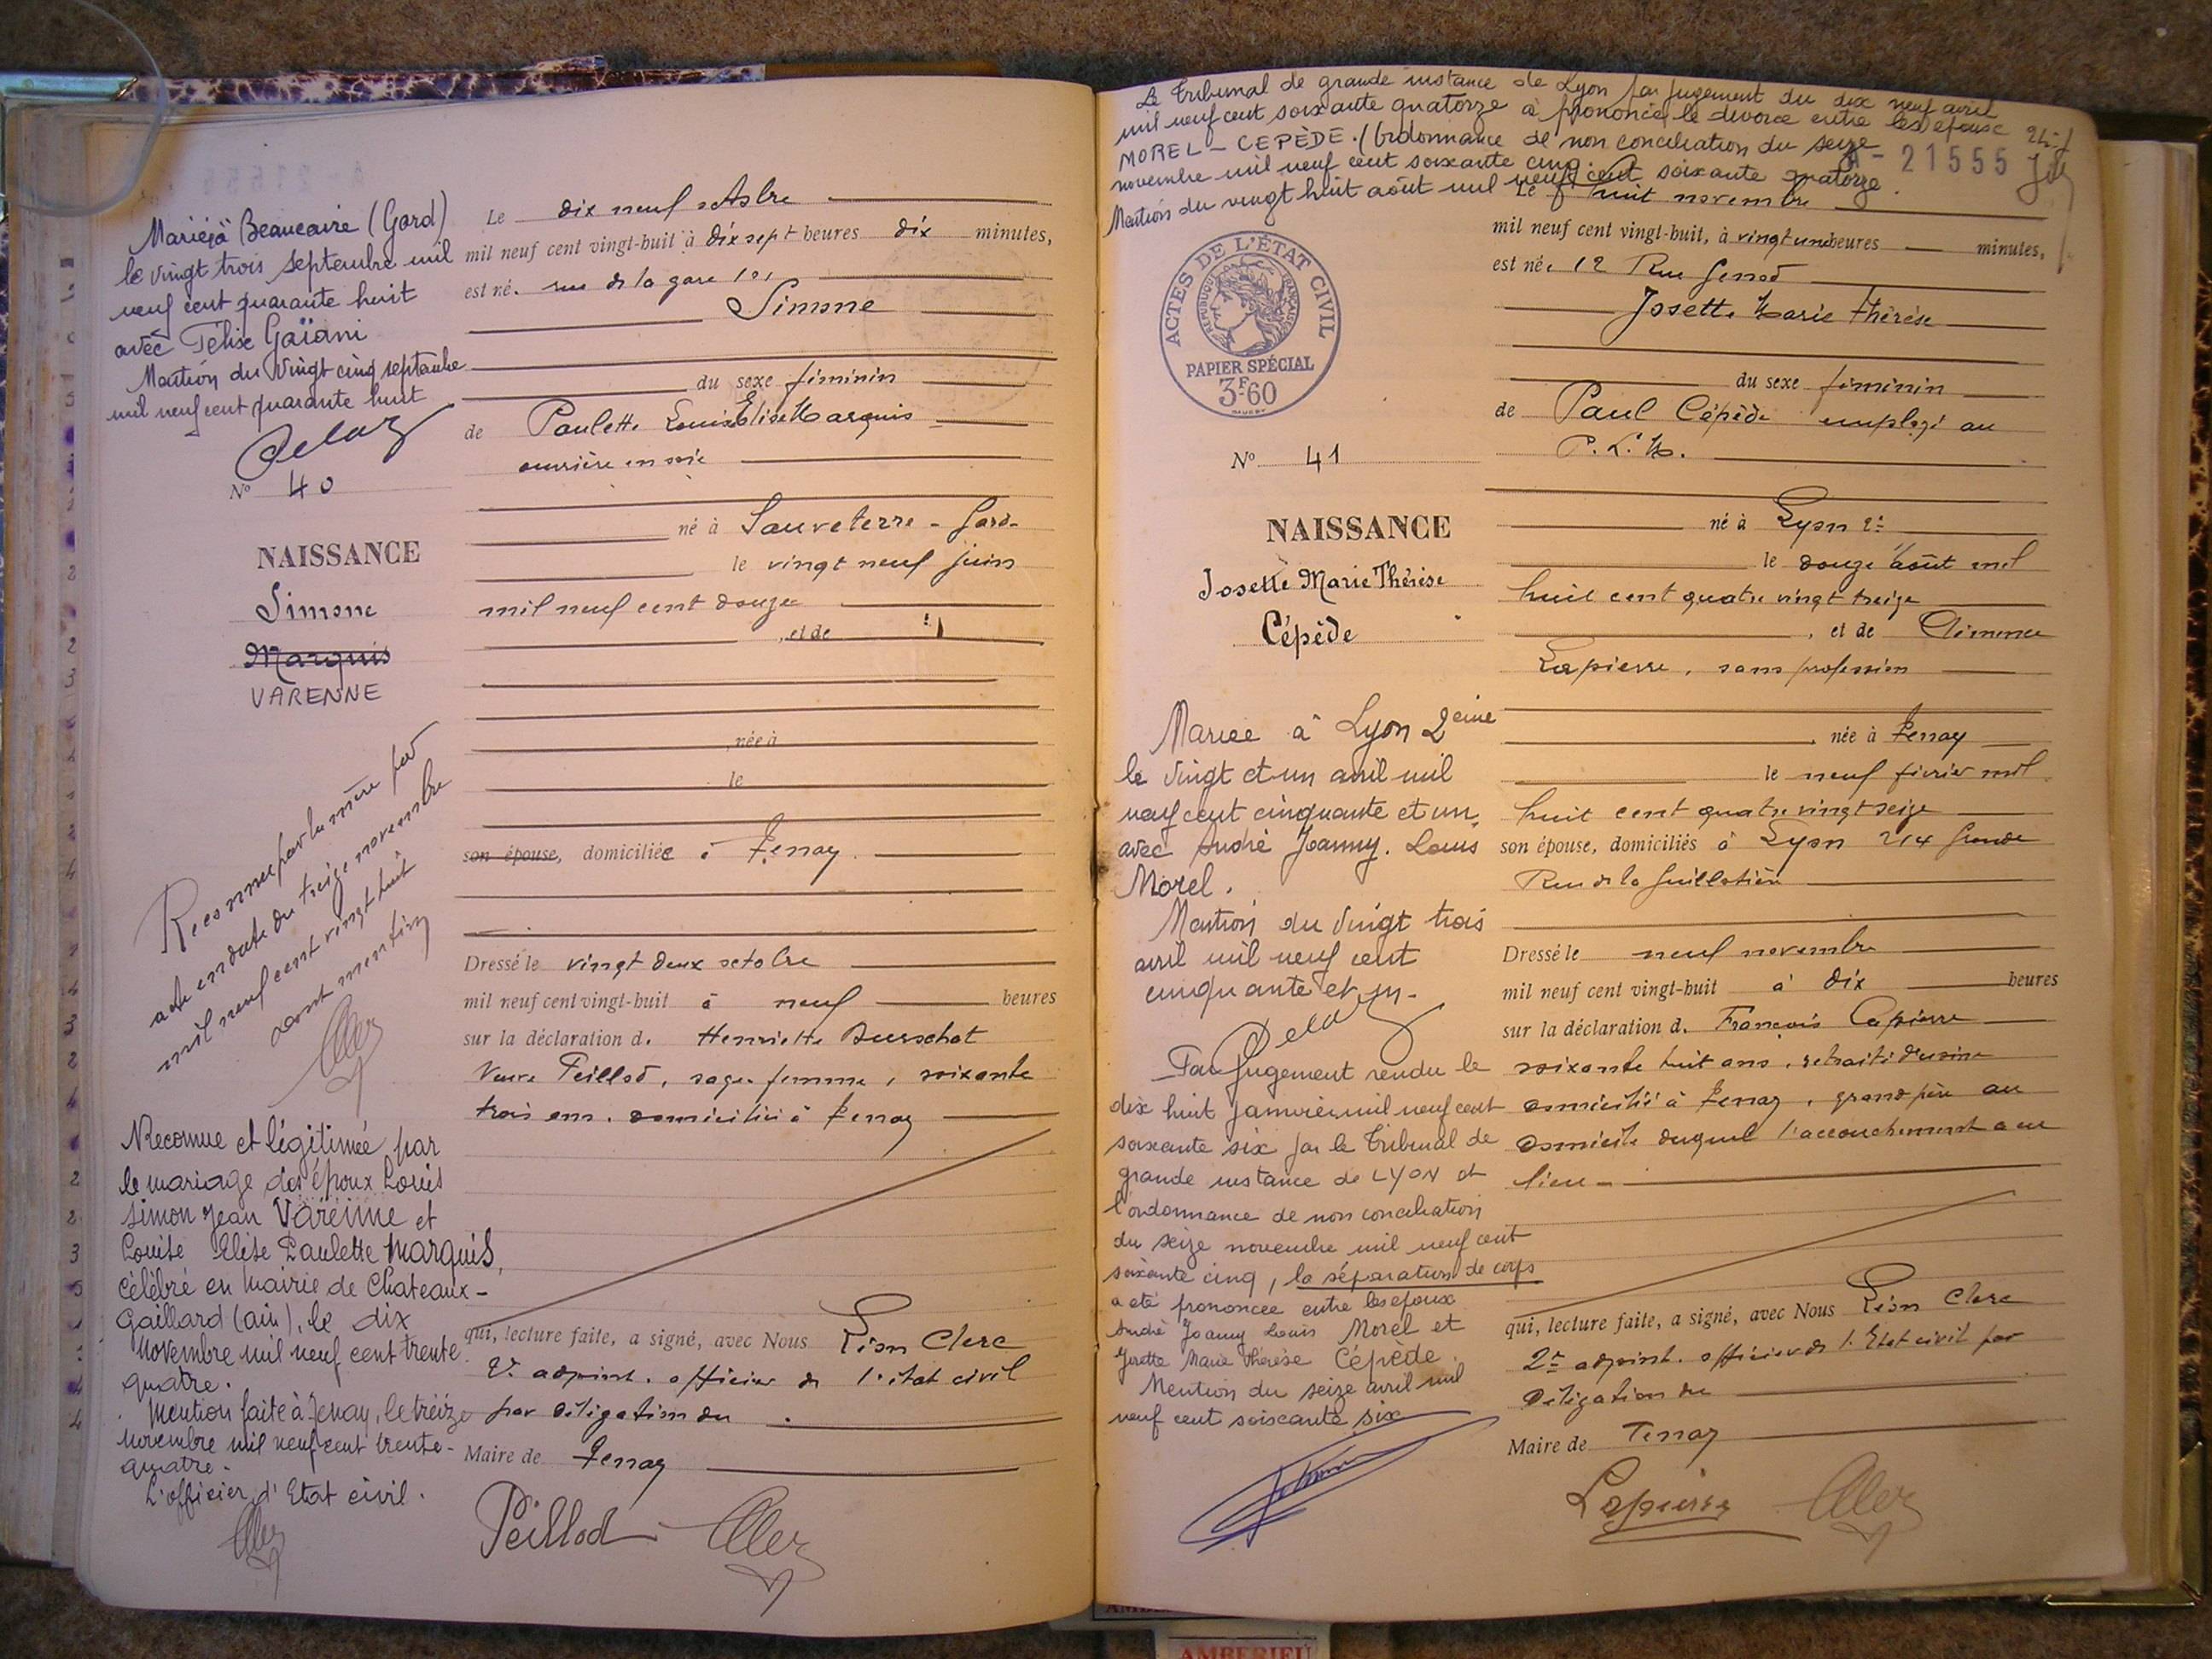 Mariée à Beaucaire (Gard)
le vingt trois septembre mil
neuf cent quarante huit
avec Félix Gaïani
Mention du vingt cinq septembre
mil neuf cent quarante huit
N° 40
NAISSANCE
Simone
Marquis
VARENNE
Reconnue par la mère par
acte en date du treize novembre
mil neuf cent vingt huit
dont mention
Reconnue et légitimée par
le mariage des époux Louis
Simon Jean Varenne et
Louise Elise Paulette Marquis,
célébré en mairie de Chateaux-
Gaillard (ain), le dix
novembre mil neuf cent trente
quatre.
Mention faite à Tenay, le treize
novembre mil neuf cent trente-
quatre.
L'officier d'Etat civil.
Le dix neuf octobre
mil neuf cent vingt-huit à dix sept heures dix minutes,
est né. rue de la gare
Simone
du sexe féminin
de Paulette Louise Elise Marquis
ouvrière en soie
né à Sauveterre - Gard-
le vingt neuf juin
mil neuf cent douze
, et de
née à
le
son épouse, domiciliée à Tenay
Dressé le vingt deux octobre
mil neuf cent vingt-huit à neuf heures
sur la déclaration d. Henriette
Veuve Peillod, sage femme, soixante
trois ans. domiciliée à Tenay
qui, lecture faite, a signé, avec Nous Léon Clerc
2e adjoint. officier de l'état civil
par délégation du
Maire de Tenay
Peillod
Le Tribunal de grande instance de Lyon par jugement du dix neuf avril
mil neuf cent soixante quatorze a prononcé le divorce entre les époux
MOREL - CEPÈDE. (Ordonnance de non conciliation du seize
novembre mil neuf cent soixante cinq.
Mention du vingt huit août mil neuf cent soixante quatorze.
21555
ACTES DE L'ÉTAT CIVIL
RÉPUBLIQUE FRANÇAISE
PAPIER SPÉCIAL
3F.60
N° 41
NAISSANCE
Josette Marie Thérèse
Cépède
Mariée à Lyon 2eme
le vingt et un avril mil
neuf cent cinquante et un,
avec André Joanny. Louis
Morel.
Mention du vingt trois
avril mil neuf cent
cinquante et un.
Par jugement rendu le
dix huit janvier mil neuf cent
soixante six par le Tribunal de
grande instance de LYON et
l'ordonnance de non conciliation
du seize novembre mil neuf cent
soixante cinq, la séparation de corps
a été prononcée entre les époux
André Joanny Louis Morel et
Josette Marie Thérèse Cépède.
Mention du seize avril mil
neuf cent soixante six
Le huit novembre
mil neuf cent vingt-huit, à vingt une heures minutes,
est née 12 Rue
Josette Marie Thérèse
du sexe féminin
de Paul Cépède employé au
P. L. M.
né à Lyon 2e
le douze août mil
huit cent quatre vingt treize
, et de Clémence
Lapierre, sans profession
née à Tenay
le neuf février mil
huit cent quatre vingt seize
son épouse, domiciliés à Lyon 214 Grande
Rue de la Guillotière
Dressé le neuf novembre
mil neuf cent vingt-huit à dix heures
sur la déclaration d. François Lapierre
soixante huit ans, retraité d'usine
domicilié à Tenay, grand père au
domicile duquel l'accouchement a eu
lieu -
qui, lecture faite, a signé, avec Nous Léon Clerc
2e adjoint. officier de l'Etat civil par
délégation du
Maire de Tenay
Lapierre
AMBERIEU